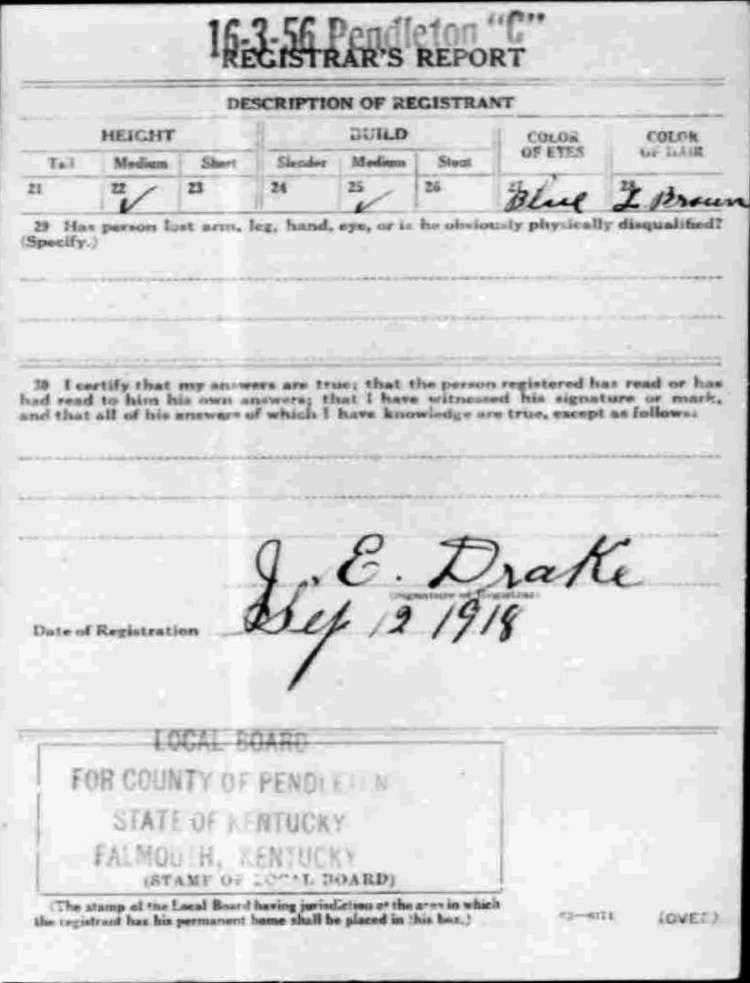 16-3-56 Pendleton "C"
REGISTRAR'S REPORT
DESCRIPTION OF REGISTRANT
HEIGHT BUILD COLOR OF EYES COLOR OF HAIR
Tall Medium Short Slender Medium Stout
21 22 ✓ 23 24 25 ✓ 26 27 Blue 28 L Brown
29 Has person lost arm, leg, hand, eye, or is he obviously physically disqualified?
(Specify.)
30 I certify that my answers are true; that the person registered has read or has
had read to him his own answers; that I have witnessed his signature or mark,
and that all of his answers of which I have knowledge are true, except as follows:
J. E. Drake
(Signature of Registrar)
Date of Registration Sep 12 1918
LOCAL BOARD
FOR COUNTY OF PENDLETON
STATE OF KENTUCKY
FALMOUTH, KENTUCKY
(STAMP OF LOCAL BOARD)
(The stamp of the Local Board having jurisdiction of the area in which
the registrant has his permanent home shall be placed in this box.)
(OVER)